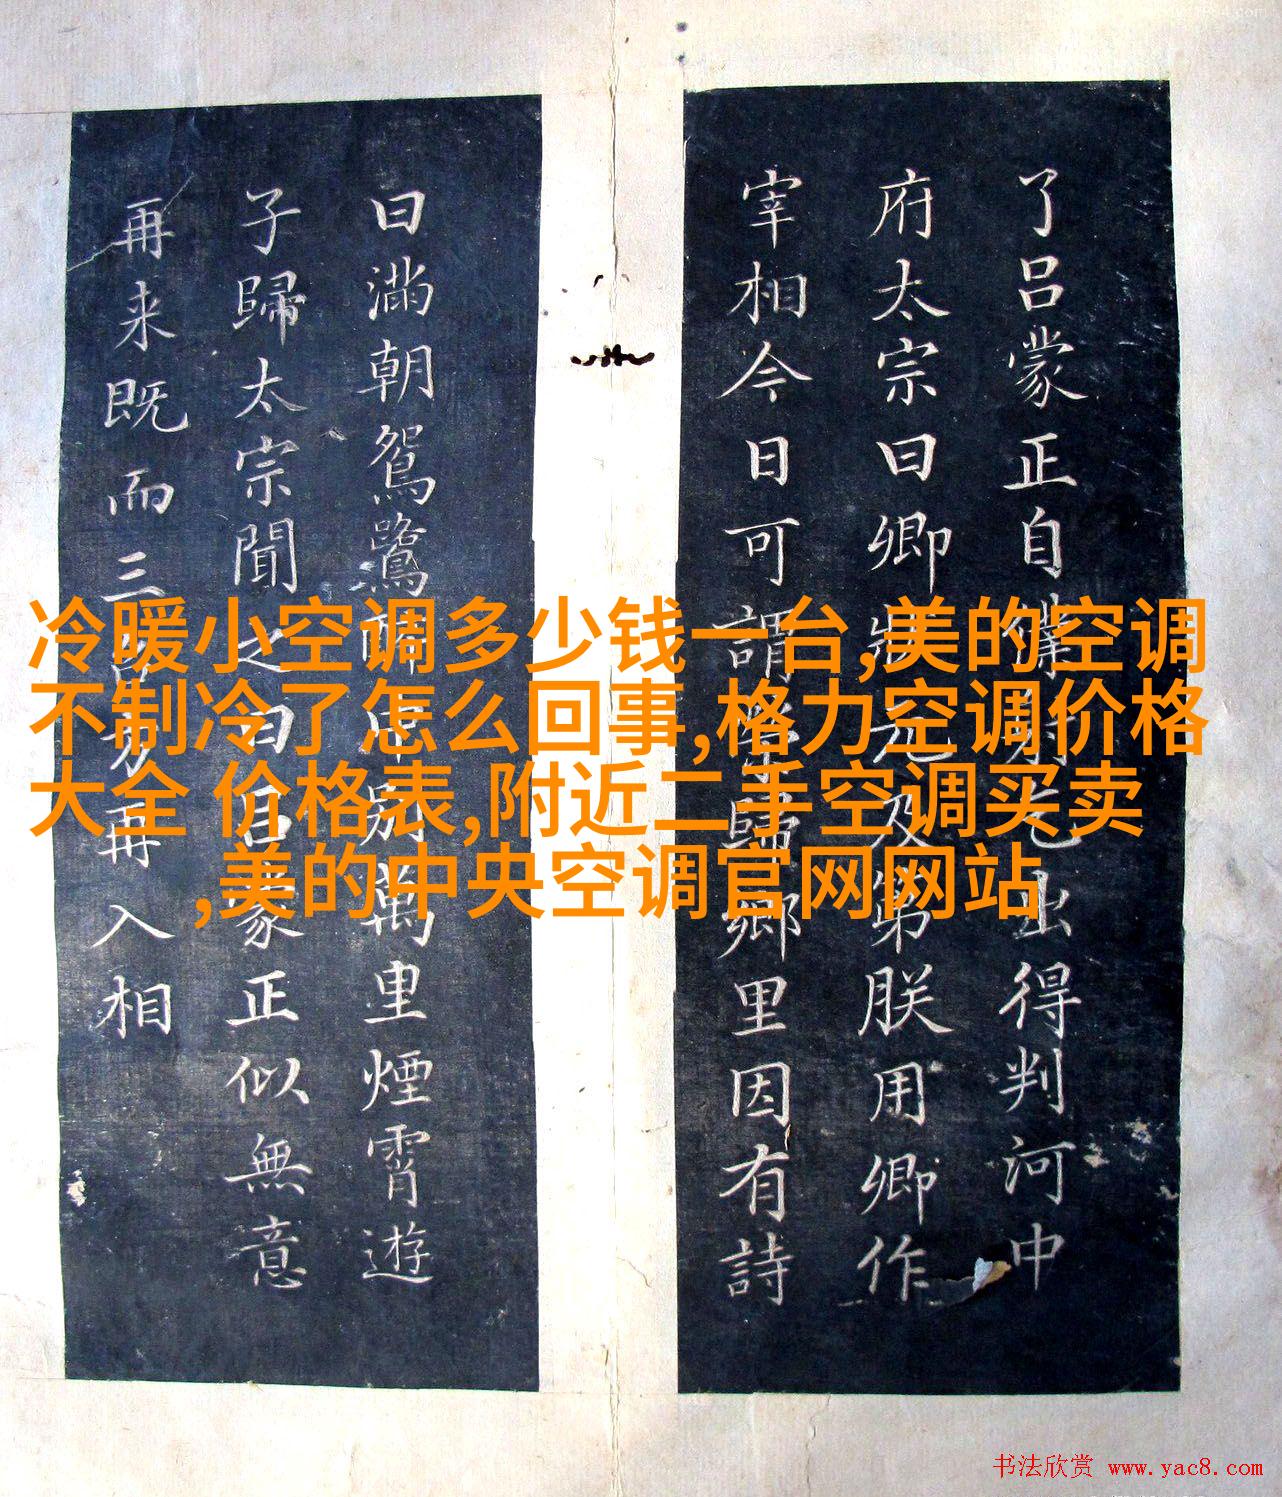 了吕蒙正自僕射出得判河中
府太宗曰卿狀元及第朕用卿作
宰相今日可謂榮歸鄉里因有詩
曰滿朝鴛鷺醉中別萬里煙霄遊
子歸太宗聞之曰蒙正似無意
再来既而三再入相
冷暖小空调多少钱一台,美的空调
不制冷了怎么回事,格力空调价格
大全 价格表,附近二手空调买卖
,美的中央空调官网网站
书法欣赏 www.yac8.com